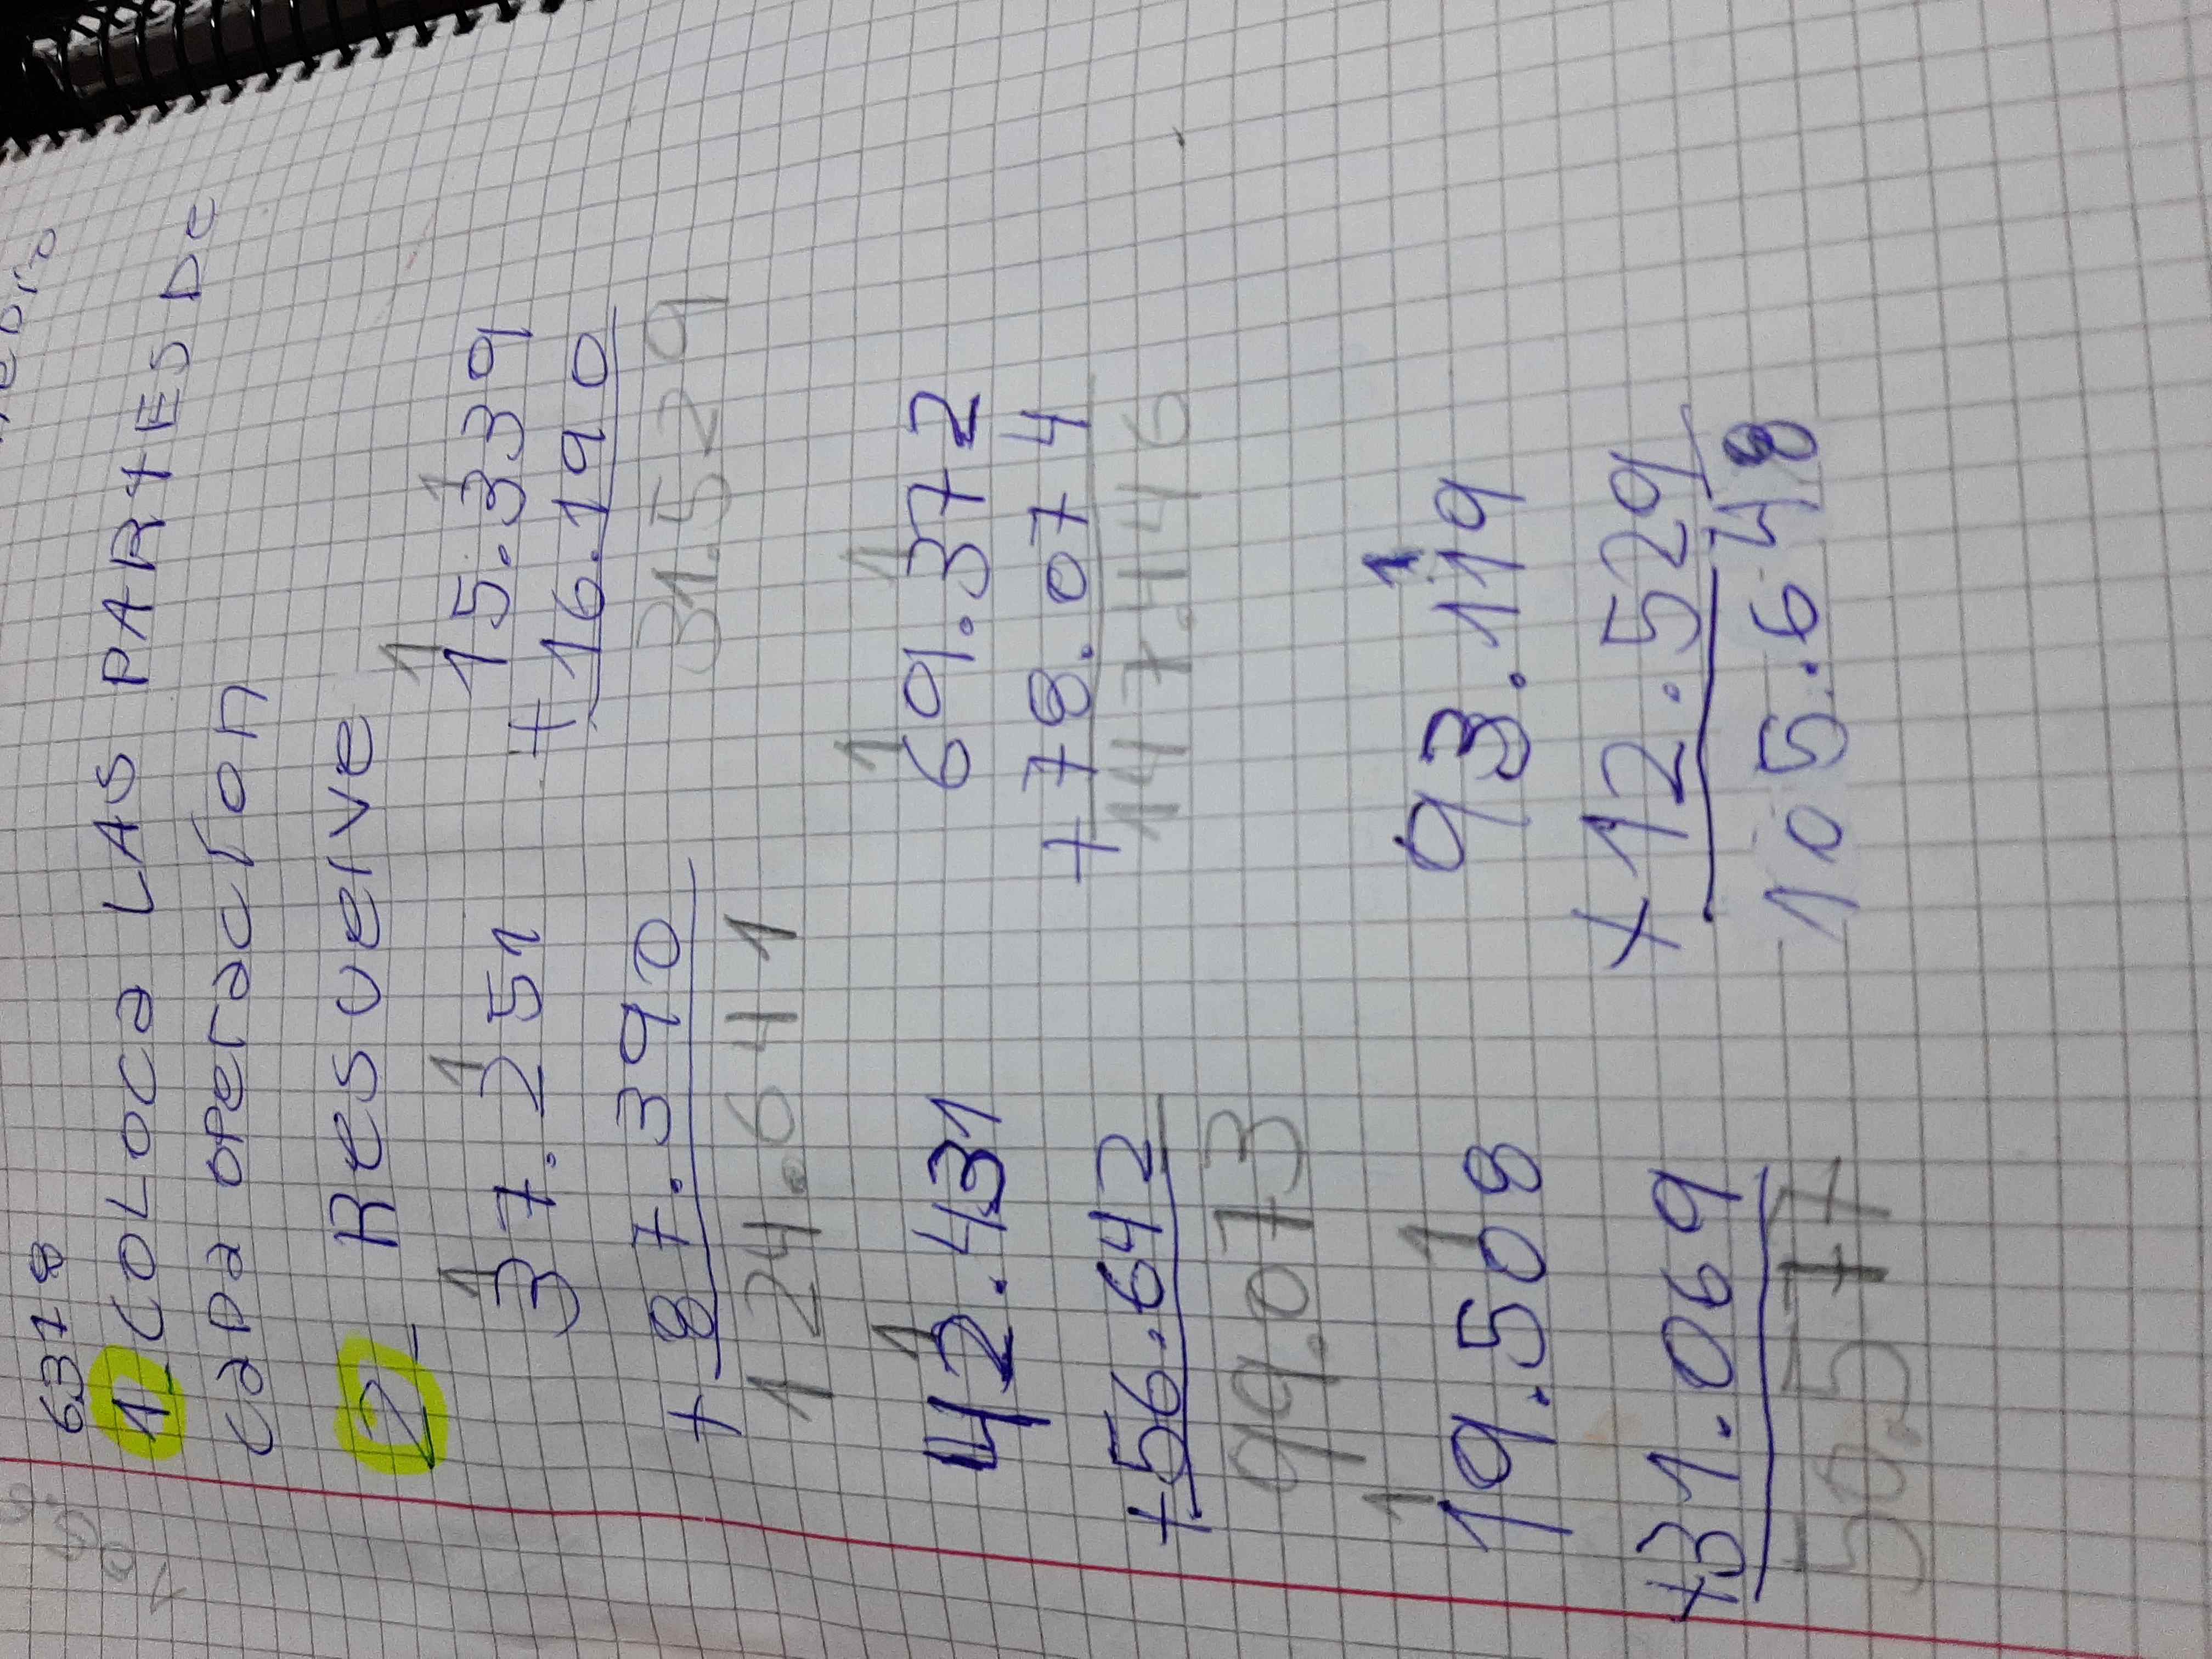 6378
1_ COLOCA LAS PARTES DE
CADA OPERACION
2_ Resuelve
1 1
37.251
+87.390
124.641
1 1
15.339
+16.190
31.529
1
42.431
+56.642
99.073
1 1
69.372
+78.074
147.446
1 1
19.508
+31.069
50.577
1
93.119
+12.529
105.648